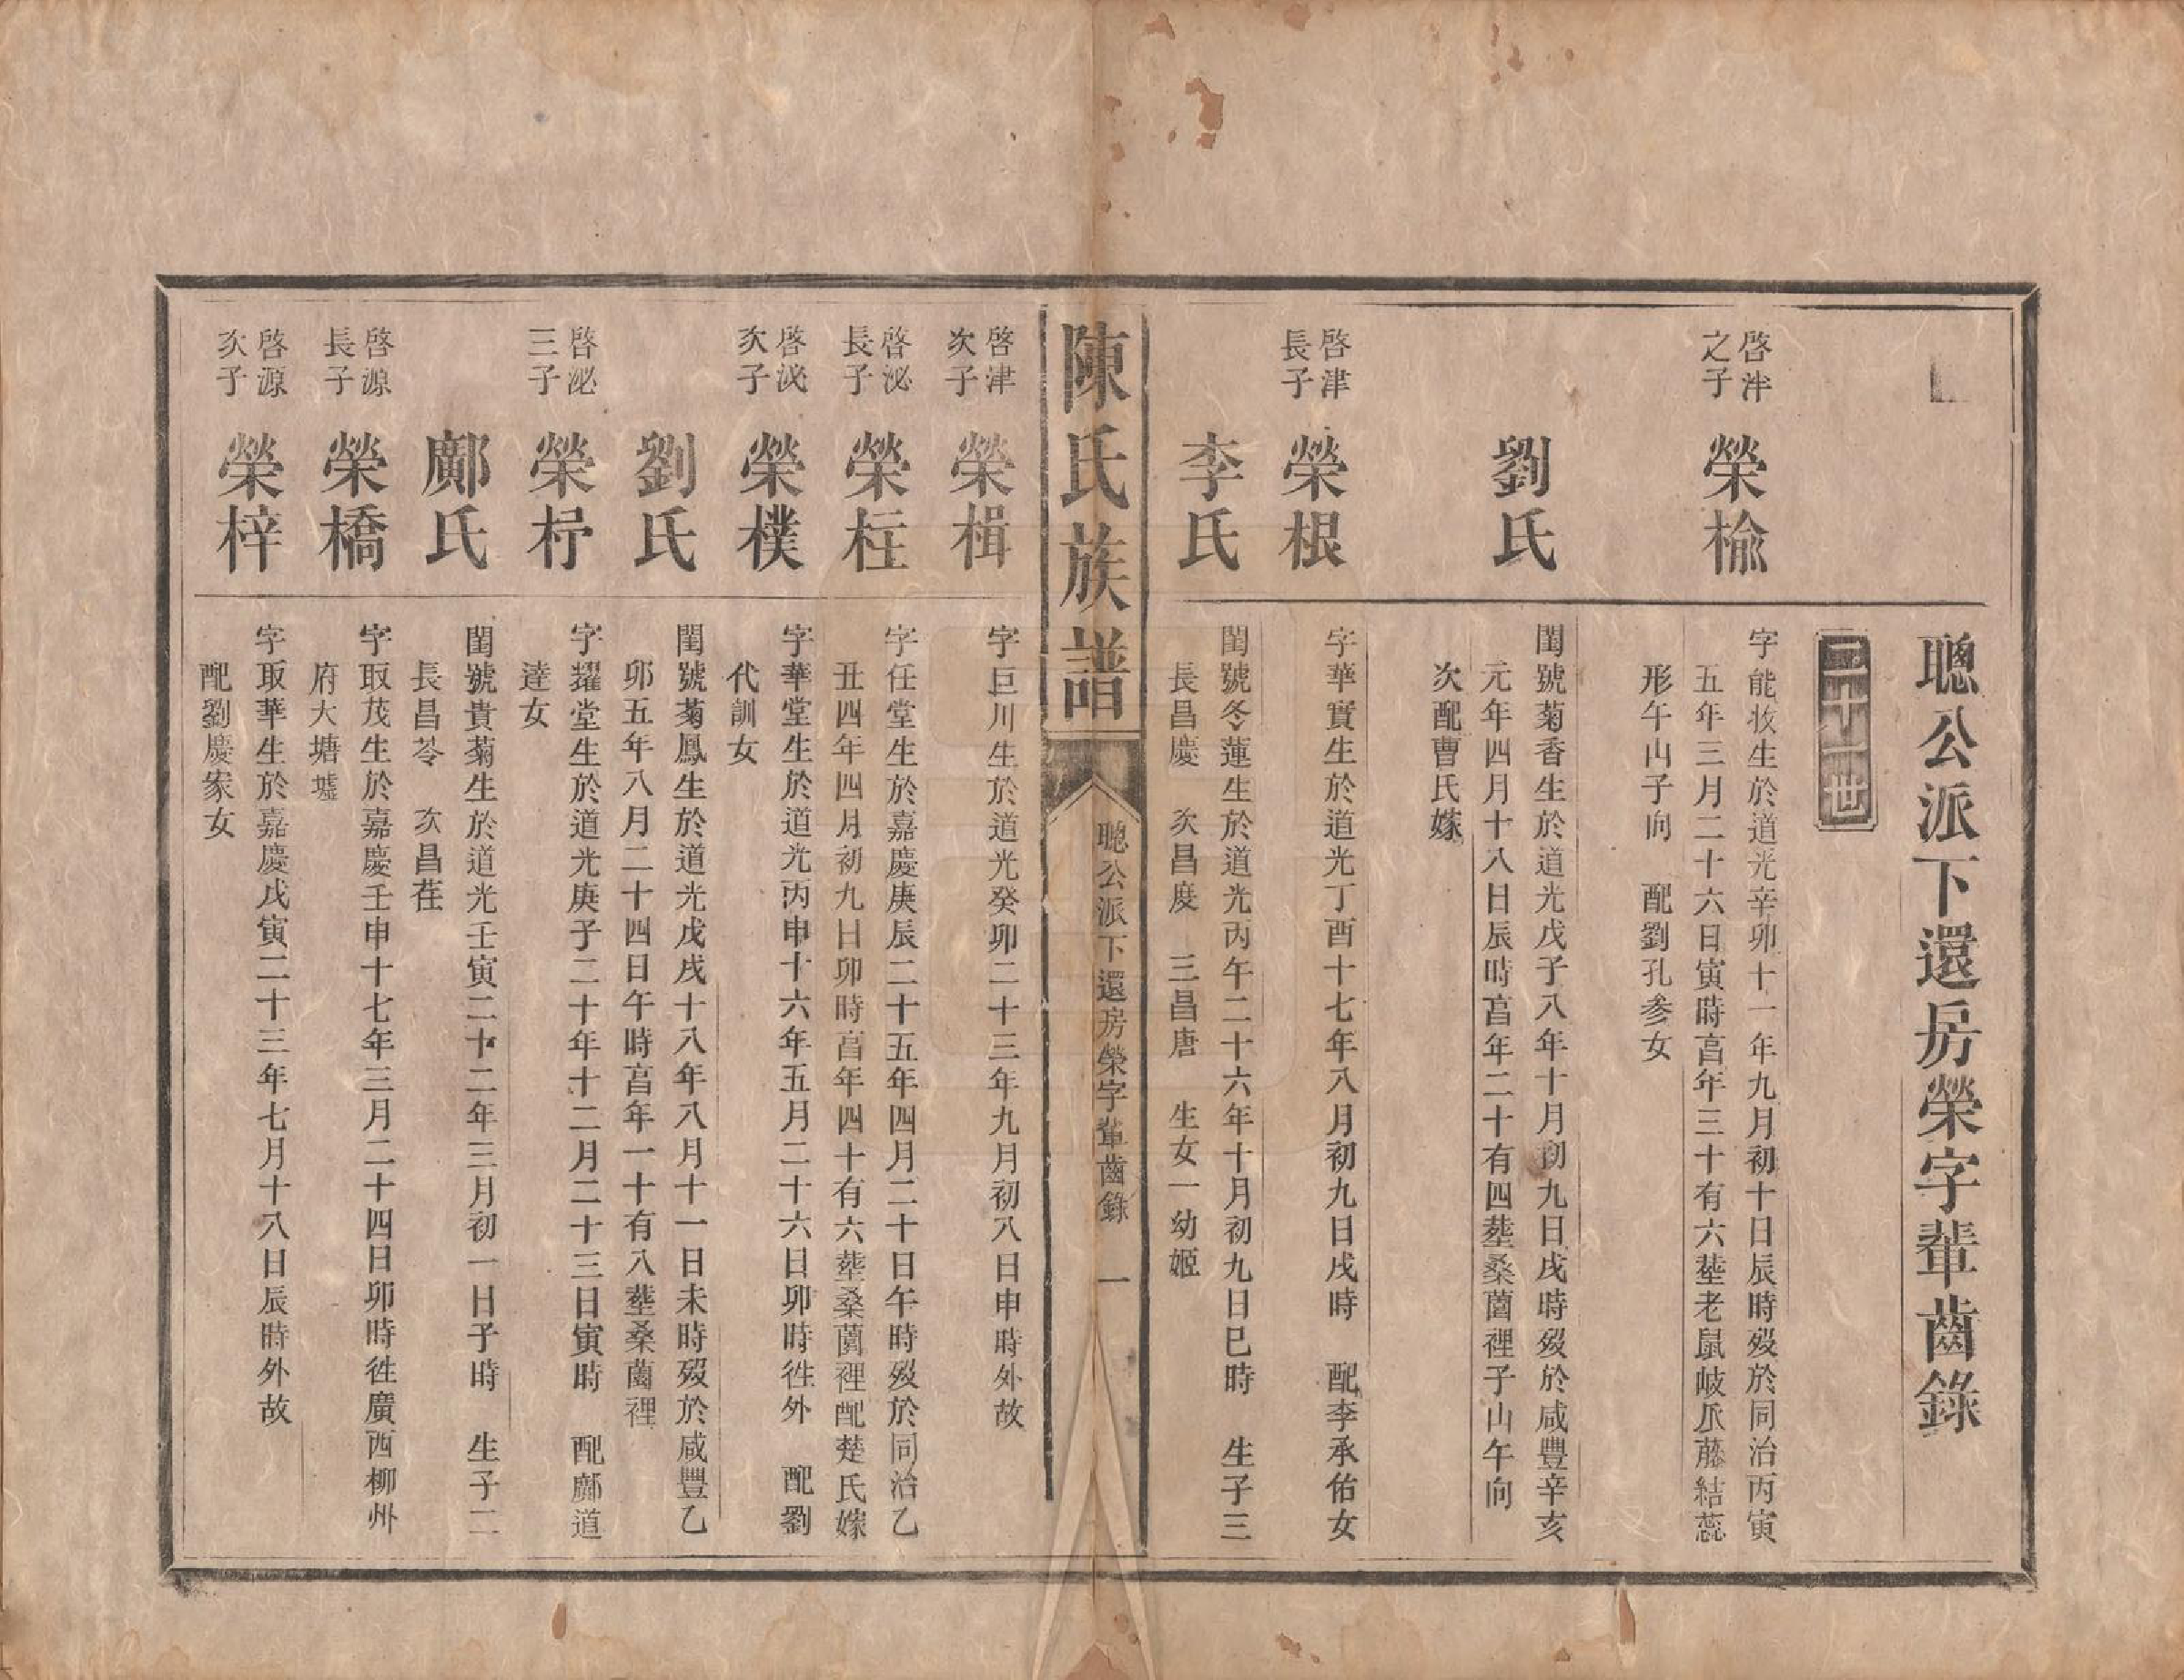 聰公派下還房榮字輩齒錄
二十一世
啓泮
之子
榮楡
字能妆生於道光辛卯十一年九月初十日辰時歿於同治丙寅
五年三月二十六日寅時享年三十有六塟老鼠岐瓜藤結蕊
形午山子向 配劉孔參女
劉氏
閨號菊香生於道光戊子八年十月初九日戌時歿於咸豐辛亥
元年四月十八日辰時享年二十有四塟桑薗裡子山午向
次配曹氏嫁
啓津
長子
榮根
字華實生於道光丁酉十七年八月初九日戌時 配李承佑女
李氏
閨號冬蓮生於道光丙午二十六年十月初九日巳時 生子三
長昌慶 次昌度 三昌唐 生女一幼姬
陳氏族譜
聰公派下還房榮字輩齒錄 一
啓津
次子
榮楫
字巨川生於道光癸卯二十三年九月初八日申時外故
啓泌
長子
榮枉
字任堂生於嘉慶庚辰二十五年四月二十日午時歿於同治乙
丑四年四月初九日卯時享年四十有六塟桑薗裡配楚氏嫁
啓泌
次子
榮樸
字華堂生於道光丙申十六年五月二十六日卯時徃外 配劉
代訓女
劉氏
閨號菊鳳生於道光戊戌十八年八月十一日未時歿於咸豐乙
卯五年八月二十四日午時享年一十有八塟桑薗裡
啓泌
三子
榮杼
字耀堂生於道光庚子二十年十二月二十三日寅時 配鄺道
達女
鄺氏
閨號貴菊生於道光壬寅二十二年三月初一日子時 生子二
長昌苓 次昌荏
啓源
長子
榮橋
字取茂生於嘉慶壬申十七年三月二十四日卯時徃廣西柳州
府大塘墟
啓源
次子
榮梓
字取華生於嘉慶戊寅二十三年七月十八日辰時外故
配劉慶家女